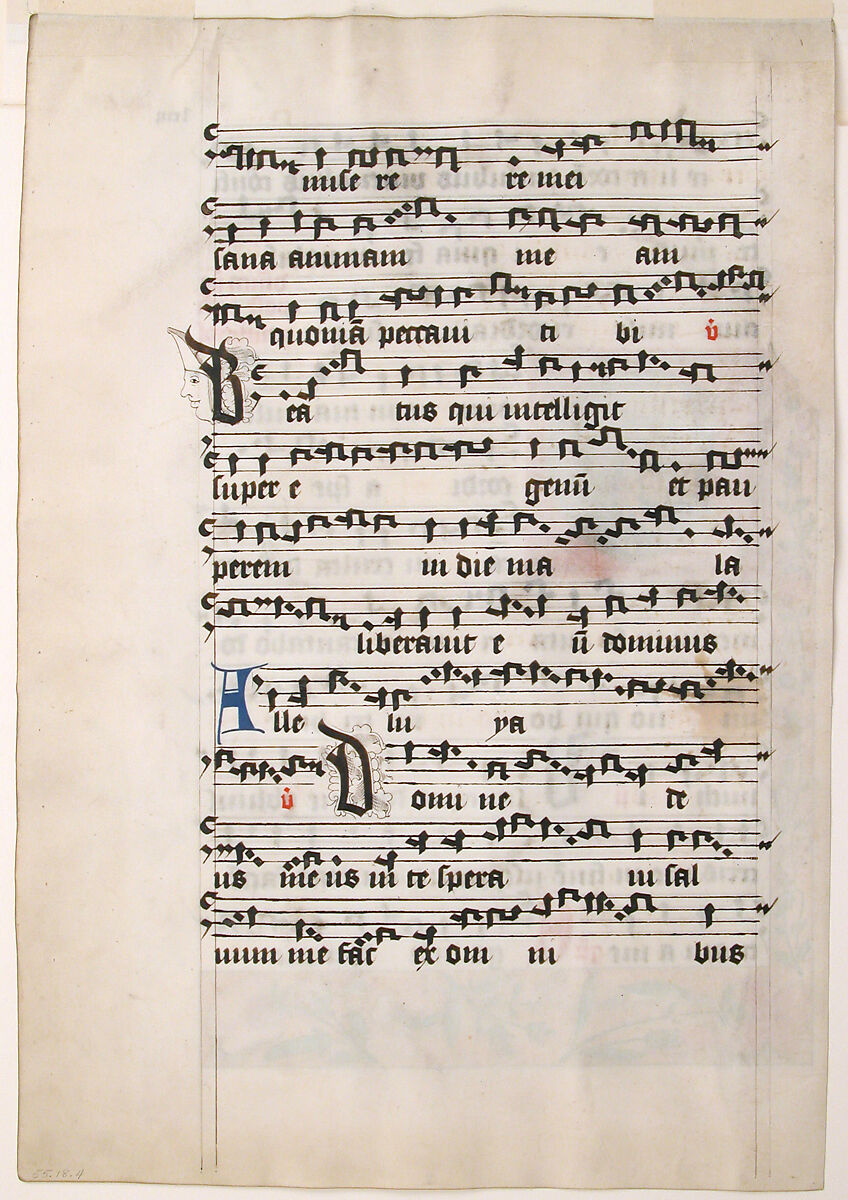 mise re re mei
sana animam me am
quoniã peccavi ti bi v̇
Bea tus qui intelligit
super e genũ et pau
perem in die ma la
liberavit e ũ dominus
Alle lu ya
v̇ Domi ne de
us me us in te spera ni sal
uum me fac ex om ni bus
55.18.4